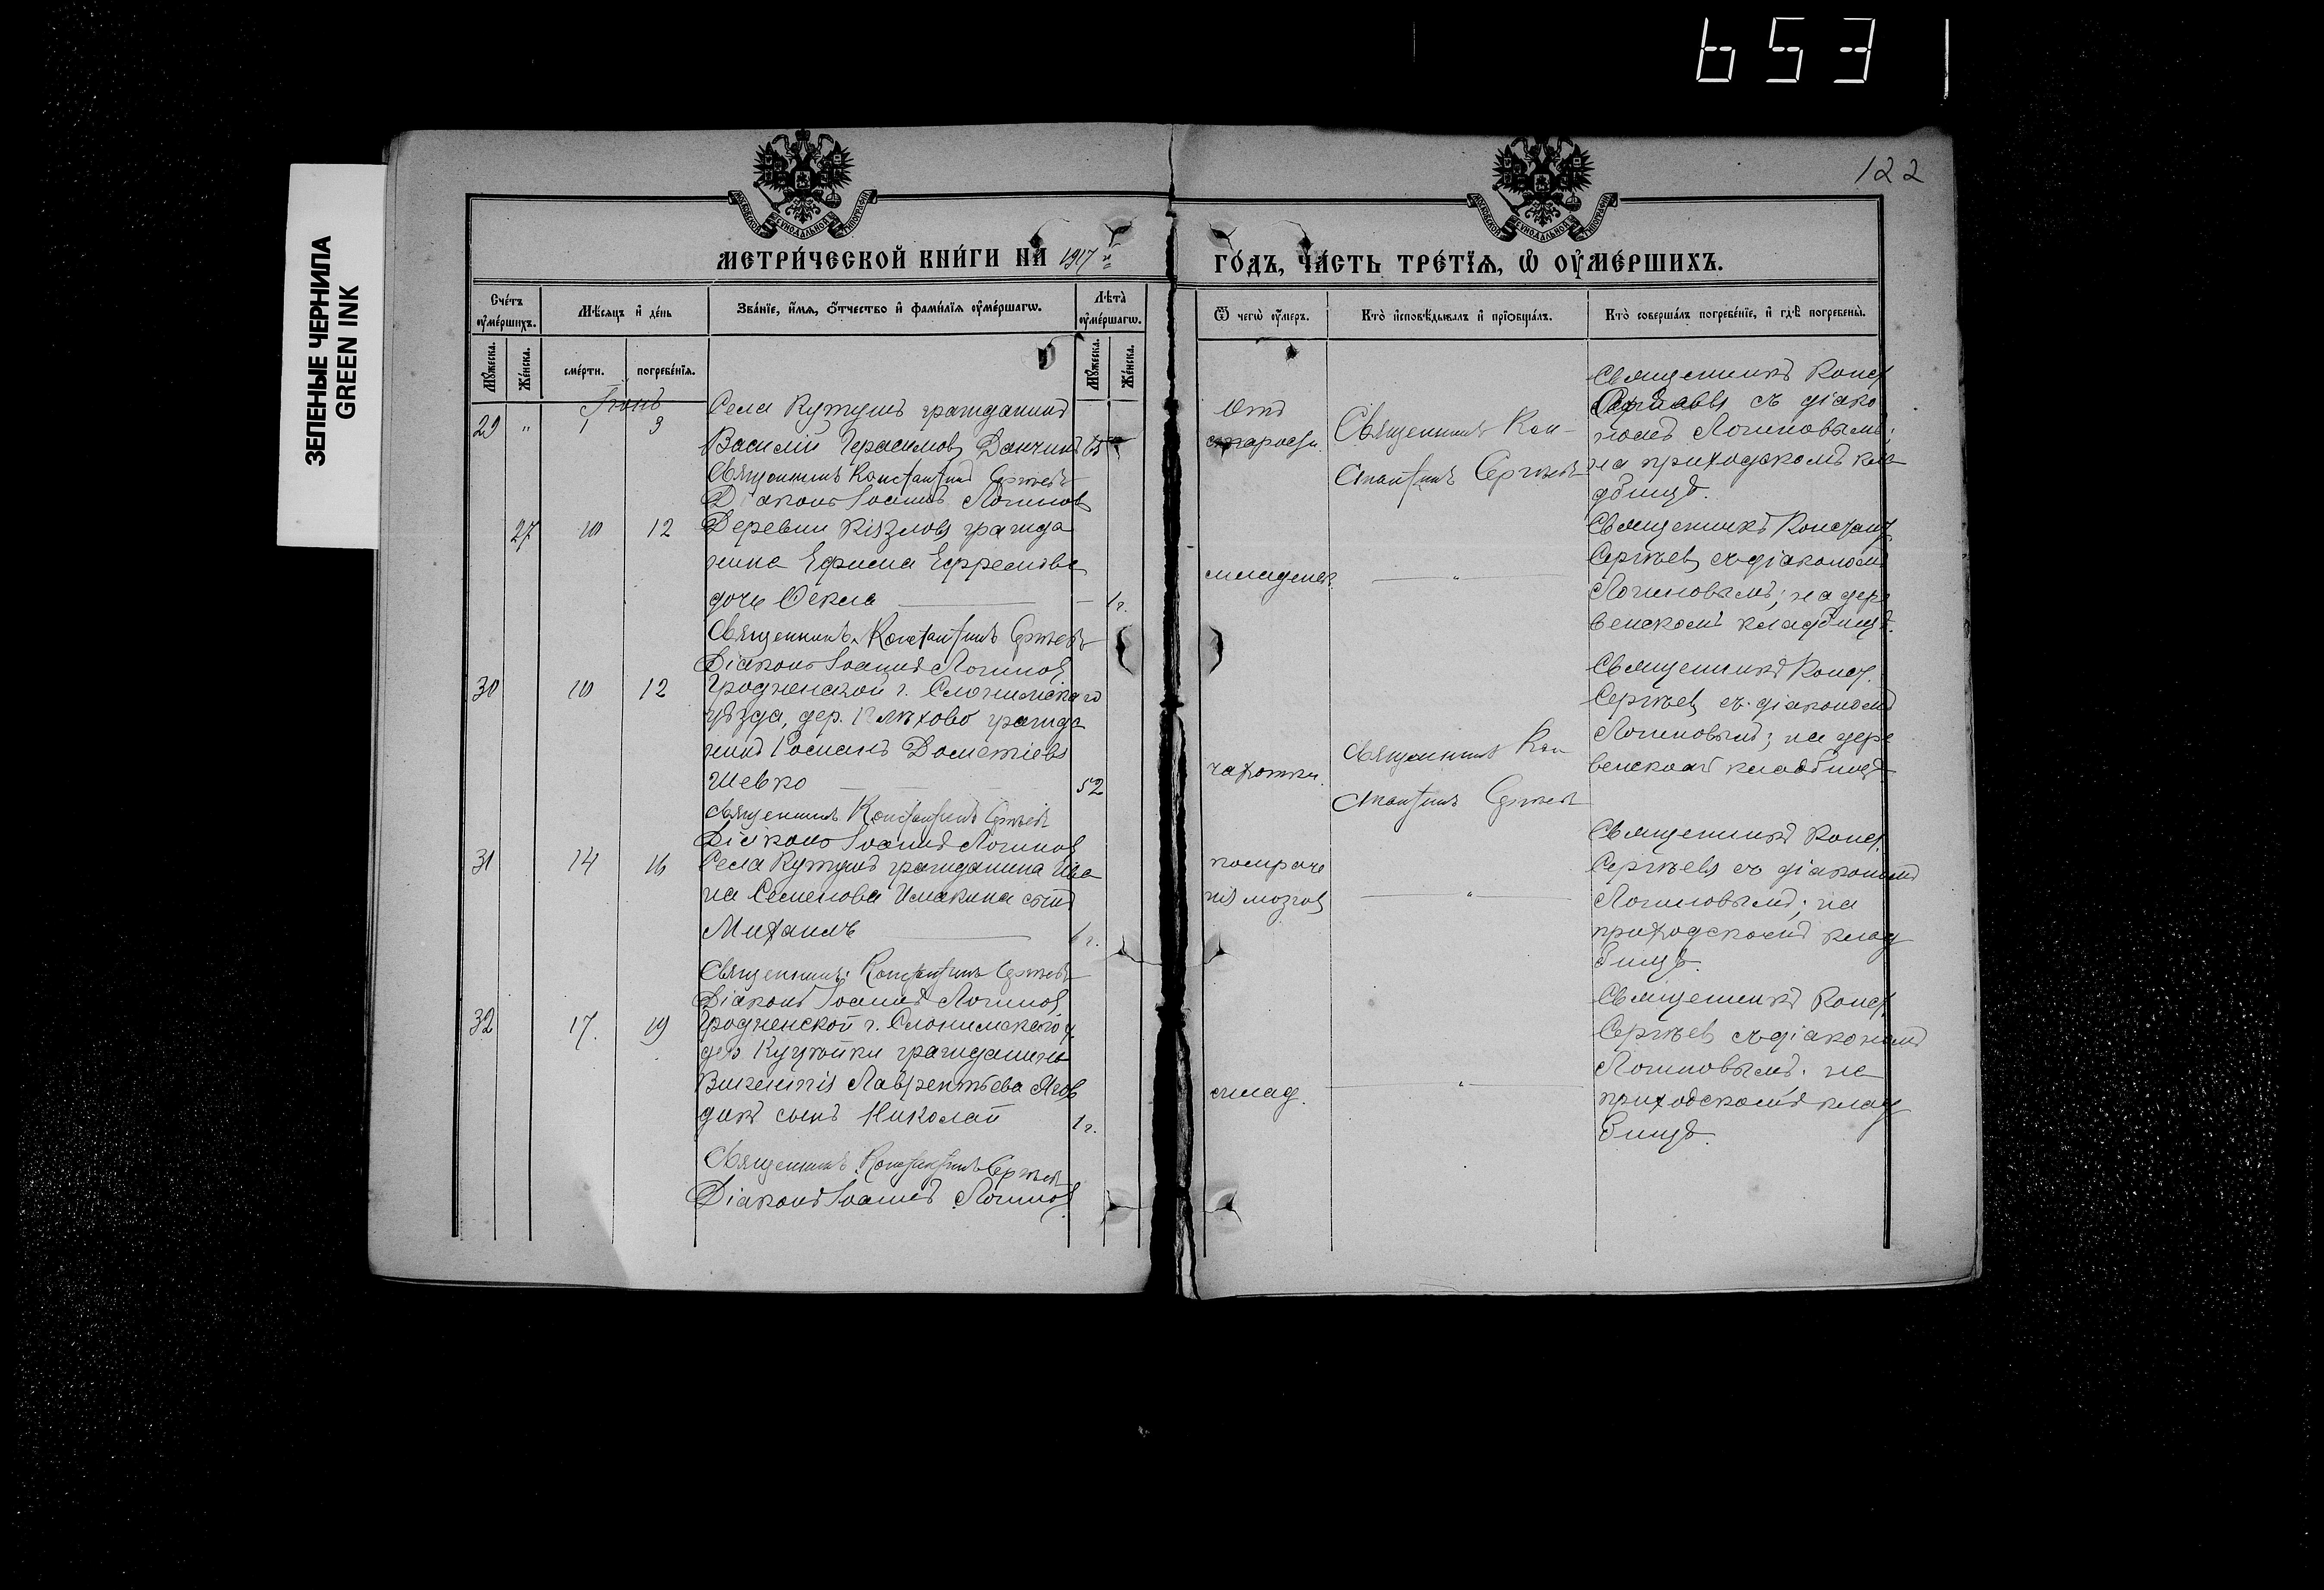 6531
122
ЗЕЛЕНЫЕ ЧЕРНИЛА
GREEN INK
МЕТРИ́ЧЕСКОЙ КНИ́ГИ НА 1917 й
ГО́ДЪ, ЧА́СТЬ ТРЕ́ТЇѦ, Ѡ҆ ОУ҆МЕ́РШИХЪ.
Сче́тъ оу҆ме́ршихъ.
Мѣ́сѧцъ и҆ де́нь
Зва́нїе, и҆́мѧ, ѻ҆́тчество и҆ фами́лїѧ оу҆ме́ршагѡ.
Лѣ́та оу҆ме́ршагѡ.
Ѿ чегѡ̀ оу҆́меръ.
Кто̀ и҆сповѣ́дывалъ и҆ прїѡбща́лъ.
Кто̀ соверша́лъ погребе́нїе, и҆ гдѣ̀ погребены̀.
Мꙋ́жеска.
Же́нска.
сме́рти.
погребе́нїѧ.
Мꙋ́жеска.
Же́нска.
Іюнь
29 " 1 3
Села Кутушъ гражданинъ
Василій Герасимовъ
Священникъ Константинъ Сергѣевъ
Діаконъ Іоаннъ Логиновъ
Отъ
старости.
Священникъ Кон-
стантинъ Сергѣевъ
Священникъ Конст.
съ діако
номъ Логиновымъ;
на приходскомъ кла
дбищѣ.
27 10 12
Деревни гражда
нина Ефима Ефремова
дочь Ѳекла — 1 г.
Священникъ Константинъ Сергѣевъ
Діаконъ Іоаннъ Логиновъ
младенч. — " —
Священникъ Констант.
Сергѣевъ съ діакономъ
Логиновымъ; на дере
венскомъ кладбищѣ.
30 10 12
Гродненской г. Слонимскаго
уѣзда, дер. гражда
нинъ Романъ Дометіевъ
Шевко 52
Священникъ Константинъ Сергѣевъ
Діаконъ Іоаннъ Логиновъ
чахотки.
Священникъ Кон
стантинъ Сергѣевъ
Священникъ Конст.
Сергѣевъ съ діакономъ
Логиновымъ; на дере
венскомъ кладбищѣ
31 14 16
Села Кутушъ гражданина Ива
на Семенова Имакина сынъ
Михаилъ 6 г.
Священникъ Константинъ Сергѣевъ
Діаконъ Іоаннъ Логиновъ
мозговъ — " —
Священникъ Конст.
Сергѣевъ съ діакономъ
Логиновымъ; на
приходскомъ клад
бищѣ.
32 17. 19
Гродненской г. Слонимскаго у.
дер. гражданина
Викентія Лаврентьева
сынъ Николай 1 г.
Священникъ Константинъ Сергѣевъ
Діаконъ Іоаннъ Логиновъ
млад. — " —
Священникъ Конст.
Сергѣевъ съ діакономъ
Логиновымъ. на
приходскомъ клад
бищѣ.